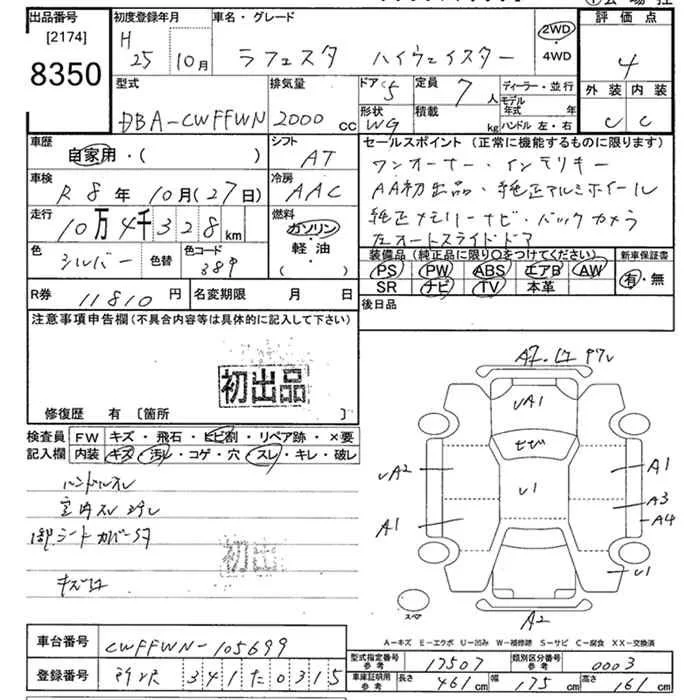 出品番号
[2174]
8350
初度登録年月
H 25 10月
車名・グレード
ラフェスタ ハイウェイスター
2WD
・
4WD
評価点
4
外装 内装
C C
型式
DBA-CWFFWN
排気量
2000 cc
ドア 5
形状 WG
定員 7 人
積載 kg
ディーラー・並行
モデル
年式 年
ハンドル 左・右
車歴
自家用・( )
シフト
AT
車検
R 8年 10月(27日)
冷房
AAC
走行
10万4千328km
燃料
ガソリン
軽・油
( )
色
シルバー
色替
色コード
389
R券 11810円
名変期限 月 日
セールスポイント (正常に機能するものに限ります)
ワンオーナー・インテリキー
AA初出品・純正アルミホイール
純正メモリーナビ・バックカメラ
左オートスライドドア
装備品 (純正品に限り○をつけてください)
PS PW ABS エアB AW
SR ナビ TV 本革
新車保証書
有・無
後日品
注意事項申告欄 (不具合内容等は具体的に記入して下さい)
初出品
修復歴 有 [箇所 ]
検査員
記入欄
FW キズ・飛石・ヒビ割・リペア跡・×要
内装 キズ・汚レ・コゲ・穴・スレ・キレ・破レ
ハンドルスレ
室内スレ汚レ
初出
UA1
UA2
A1
U1
A1
A3
A4
U1
A2
スペア
A-キズ E-エクボ U-凹み W-補修跡 S-サビ C-腐食 XX-交換済
車台番号 CWFFWN-105699
登録番号 所沢 341 た 0315
型式指定番号
参考
17507
類別区分番号
参考
0003
車庫証明用
参考
長さ 461cm 幅 175cm 高さ 161cm